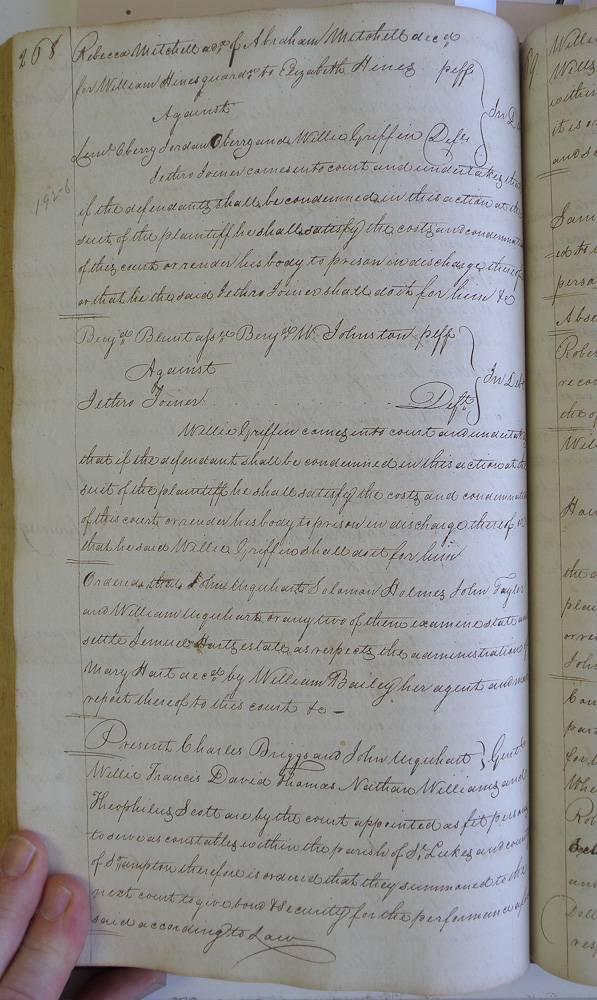 268
Rebecca Mitchell adx of Abraham Mitchell decd
for William Hines guardn to Elizabeth Hines peff
Against
Leml Eberry Jordan Oberry and Willie Griffin Defts
In De
Jethro Joiner comes into court and undertakes that
if the defendants shall be condemned in this action at the
suit of the plaintiff he shall satisfy the costs and condemnat
of this court or render his body to prison in discharge thereof
or that he the said Jethro Joiner shall do it for him &c
192-6
Benjn Blunt assee Benjn W. Johnston peff
Against
In Deb
Jethro Joiner Deft
Willie Griffin comes into court and undertak
that if the defendant shall be condemned in this action at the
suit of the plaintiff he shall satisfy the costs and condemnati
of this court or render his body to prison in discharge thereof or
that he said Willie Griffin shall do it for him
Ordered that John Urquhart Solomon Holmes John Taylor
and William Urquhart or any two of them examine state and
settle Lemuel Harts estate as respects the administration of
Mary Hart decd by William Bailey her agent and make
report thereof to this court &c —
Present Charles Briggs and John Urquhart Gent
Willie Francis David Thomas Nathan Williams and
Theophilus Scott are by the court appointed as fit persons
to serve as constables within the parish of St. Lukes and county
of Sthampton therefore is ordered that they summoned to the
next court to give bond & security for the performance afore
said according to Law
Willi
Wills
within
it is o
and s
Sam
ed to
perso
Abse
Rober
reco
the of
Wil
Har
the a
plai
or re
John
Cou
par
for
Whe
Ro
and
Doll
resp